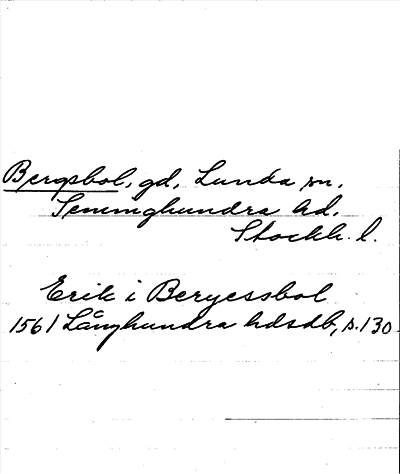 Bergsbol, gd, Lunda sn,
Seminghundra hd.
Stockh. l.
Erik i Bergessbol
1561 Långhundra hdsdb, s. 130